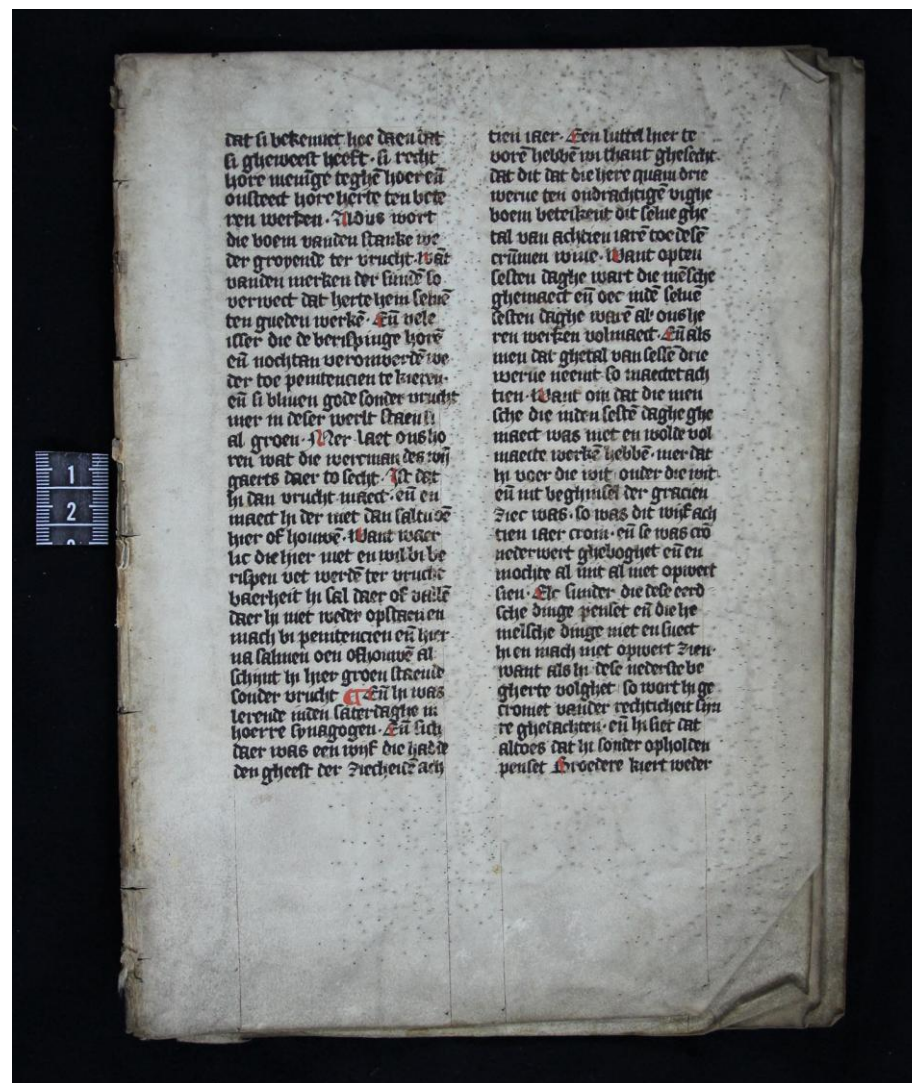 dat si bekennet hoe daen dat
si gheweest heeft · si recht
hore menīge teghē hoer eñ
onsteect hore herte ten bete
ren werken · Aldus wort
die boem vanden stanke we
der groyende ter vrucht · Wāt
vanden merken der sundē so
verwect dat herte hem seluē
ten gueden werkē · Eñ vele
isser die de berispinge horē
eñ nochtan veronwerdē we
der toe penitencien te kieren ·
eñ si bliuen gode sonder vrucht
mer in deser werlt staen si
al groen · Mer laet ons ho
ren wat die wercman des wij
gaerts daer to secht · Ist dat
hi dan vrucht maect · eñ en
maect hi der niet dan saltu dē
hier of houwē · Want waer
lic die hier niet en wil bi be
rispen vet werdē ter vrucht
baerheit hi sal daer of vallē
daer hi niet weder opstaen en
mach bi penitencien eñ hier
na salmen den ofhouwē al
schijnt hi hier groen staende
sonder vrucht Eñ hi was
lerende inden saterdaghe in
hoerre synagogen · Eñ sich
daer was een wijf die hadde
den gheest der ziecheidē ach
tien iaer · Een luttel hier te
vorē hebbē wi thant ghesecht ·
dat dit dat die here quam drie
werue ten ondrachtigē vighe
boem beteikent dit selue ghe
tal van achtien iarē toe desē
crūmen wiue · Want opten
sesten daghe wart die mēsche
ghemaect eñ oec indē seluē
sesten daghe warē al ons he
ren werken volmaect · Eñ als
men dat ghetal van sessē drie
werue neemt so maectet ach
tien · Want om dat die men
sche die inden sestē daghe ghe
maect was niet en wolde vol
maecte werkē hebbē · mer dat
hi voer die wit · onder die wit ·
eñ int beghinsel der gracien
ziec was · so was dit wijf ach
tien iaer crom · eñ se was crō
nederwert gheboghet eñ en
mochte al init al niet opwert
sien · Elc sunder die dese eerd
sche dinge penset eñ die he
melsche dinge niet en suect
hi en mach niet opwert zien ·
want als hi dese nederste be
gherte volghet so wort hi ge
cromet vander rechticheit sijn
re ghedachten · eñ hi siet dat
altoes dat hi sonder opholden
penset Broedere kiert weder